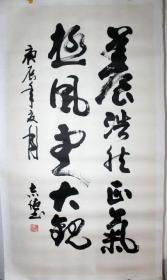 養浩然正氣
極風雲大觀
庚辰年夏月